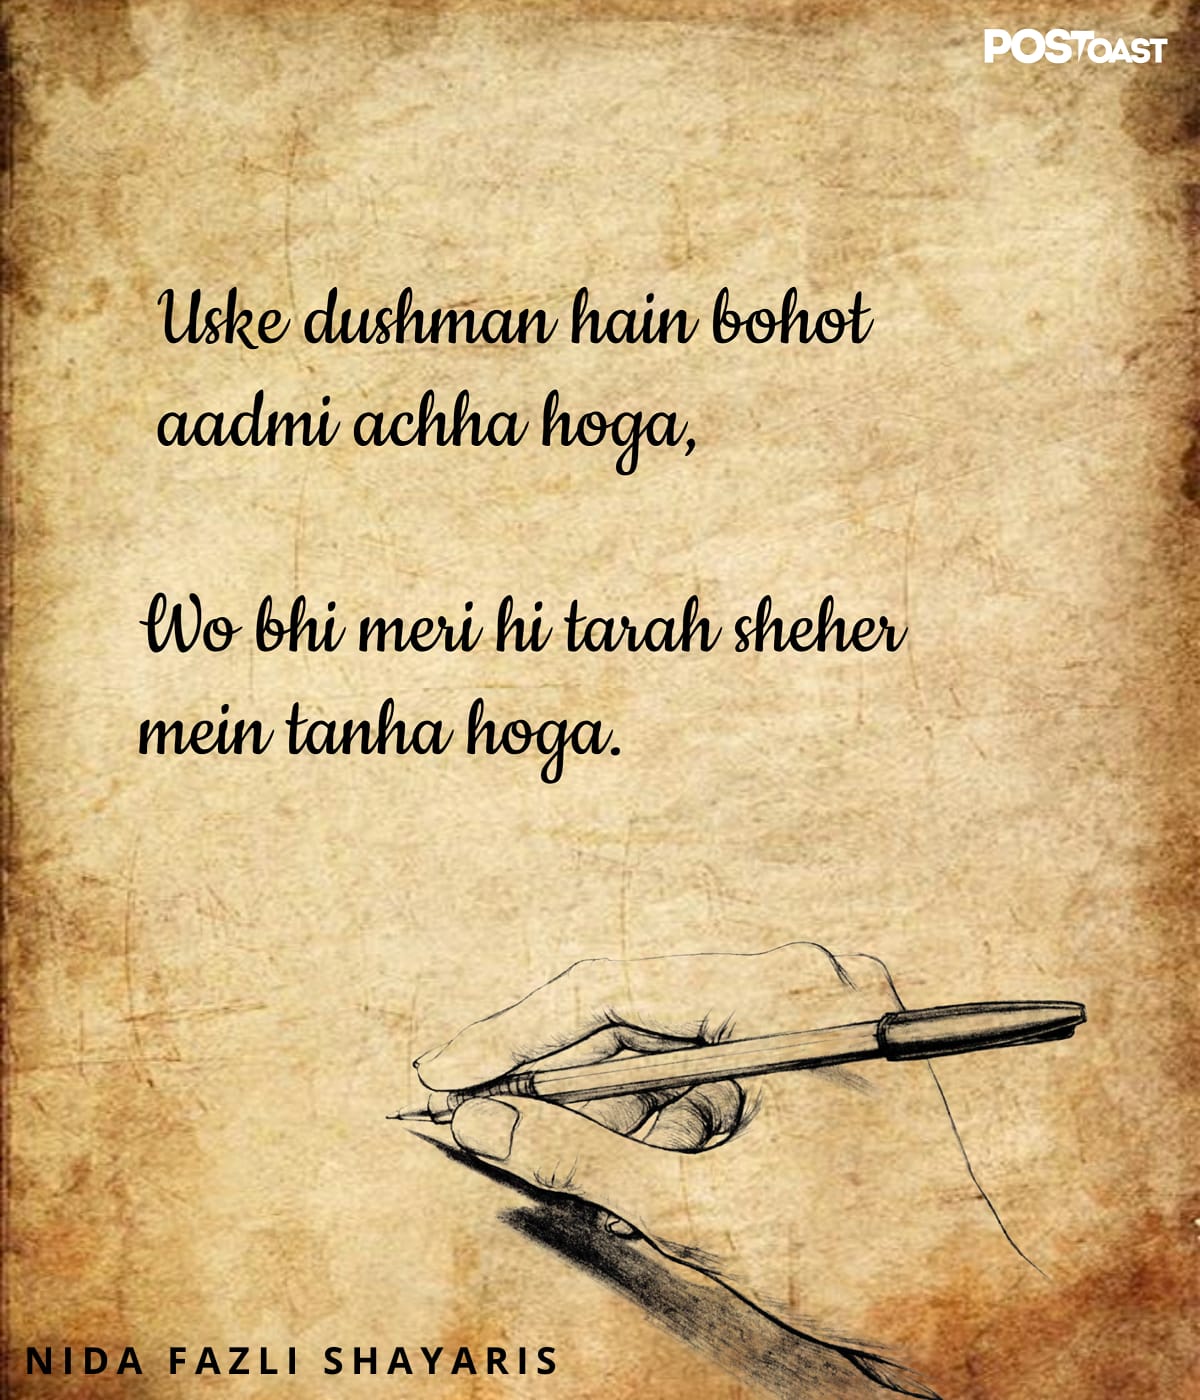 POSTOAST
Uske dushman hain bohot
aadmi achha hoga,
Wo bhi meri hi tarah sheher
mein tanha hoga.
NIDA FAZLI SHAYARIS